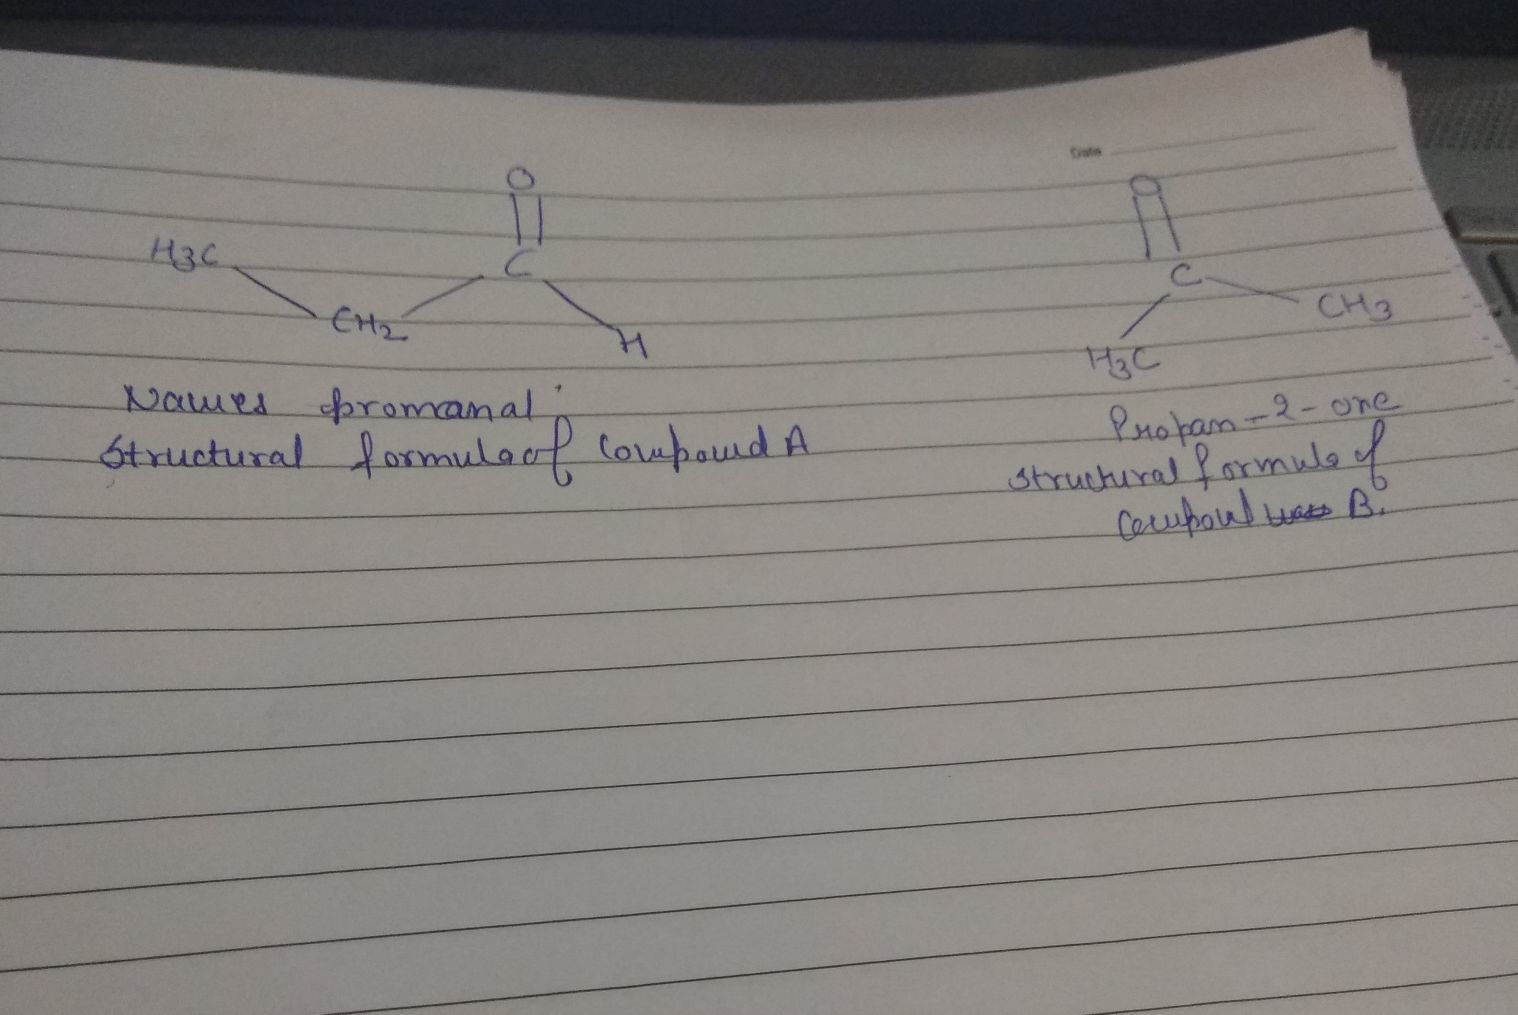 Date
O
H3C
C
CH2
H
Names promanal
Structural formula of Compound A
O
C
CH3
H3C
Propan-2-one
structural formula of
B.